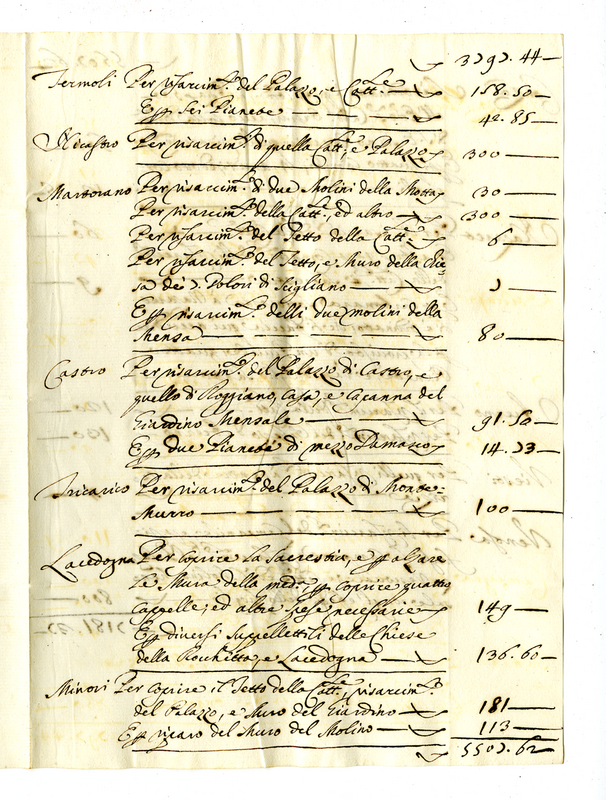 3797. 44
Termoli Per risarcim.to del Palazzo, e Catt.le 158. 50
E p Sei Pianete 42. 85
Nicastro Per risarcim.to di quella Catt.le, e Palazzo 300
Martorano Per risarcim.to di due Molini della Motta 30
Per risarcim.to della Catt.le, ed altro 300
Per risarcim.to del Tetto della Catt.le 6
Per risarcim.to del Tetto, e Muro della Chie=
sa dei 7. Dolori di Scigliano 7
E p risarcim.to delli due molini della
Mensa 80
Castro Per risarcim.to del Palazzo di Castro, e
quello di Poggiano, Casa, e Capanna del
Giardino Mensale 91. 50
E p due Pianete di mezzo Damasco 14. 73
Tricarico Per risarcim.to del Palazzo di Monte=
Murro 100
Lacedogna Per coprire la Sacrestia, e p alzare
le Mura della med.a p coprire quattro
Cappelle, ed altre spese necessarie 149
E p diversi Suppellettili delle Chiese
della Rocchetta, e Lacedogna 136. 60
Minori Per coprire il Tetto della Catt.le, risarcim.to
del Palazzo, e Muro del Giardino 181
E p riparo del Muro del Molino 113
5507. 62